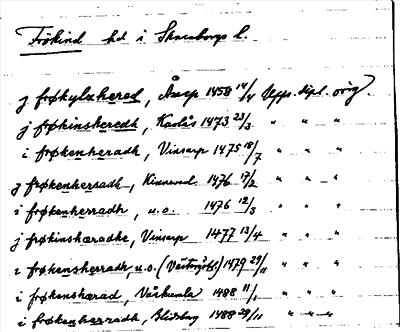 Frökind hd i Skaraborgs l.
j frøkylzhered, Åsarp 1458 14/4 Upps. dipl. orig.
j frøkinskeredh, Karlös 1473 23/3 " " "
i frøkenheradh, Vinsarp 1475 18/7 " " "
j frøkenherradh, Kinneved 1476 17/2 " " "
i frøkenherradh, u.o. 1476 12/3 " " "
j frøkinshæradhe, Vinsarp 1477 13/4 " " "
i frøkensherradh, u.o. (Västergötl.) 1479 29/11 " " "
i frøkenshærad, Vårkumla 1488 11/1 " " "
i frøkenherradh, 1488 29/11 " " "